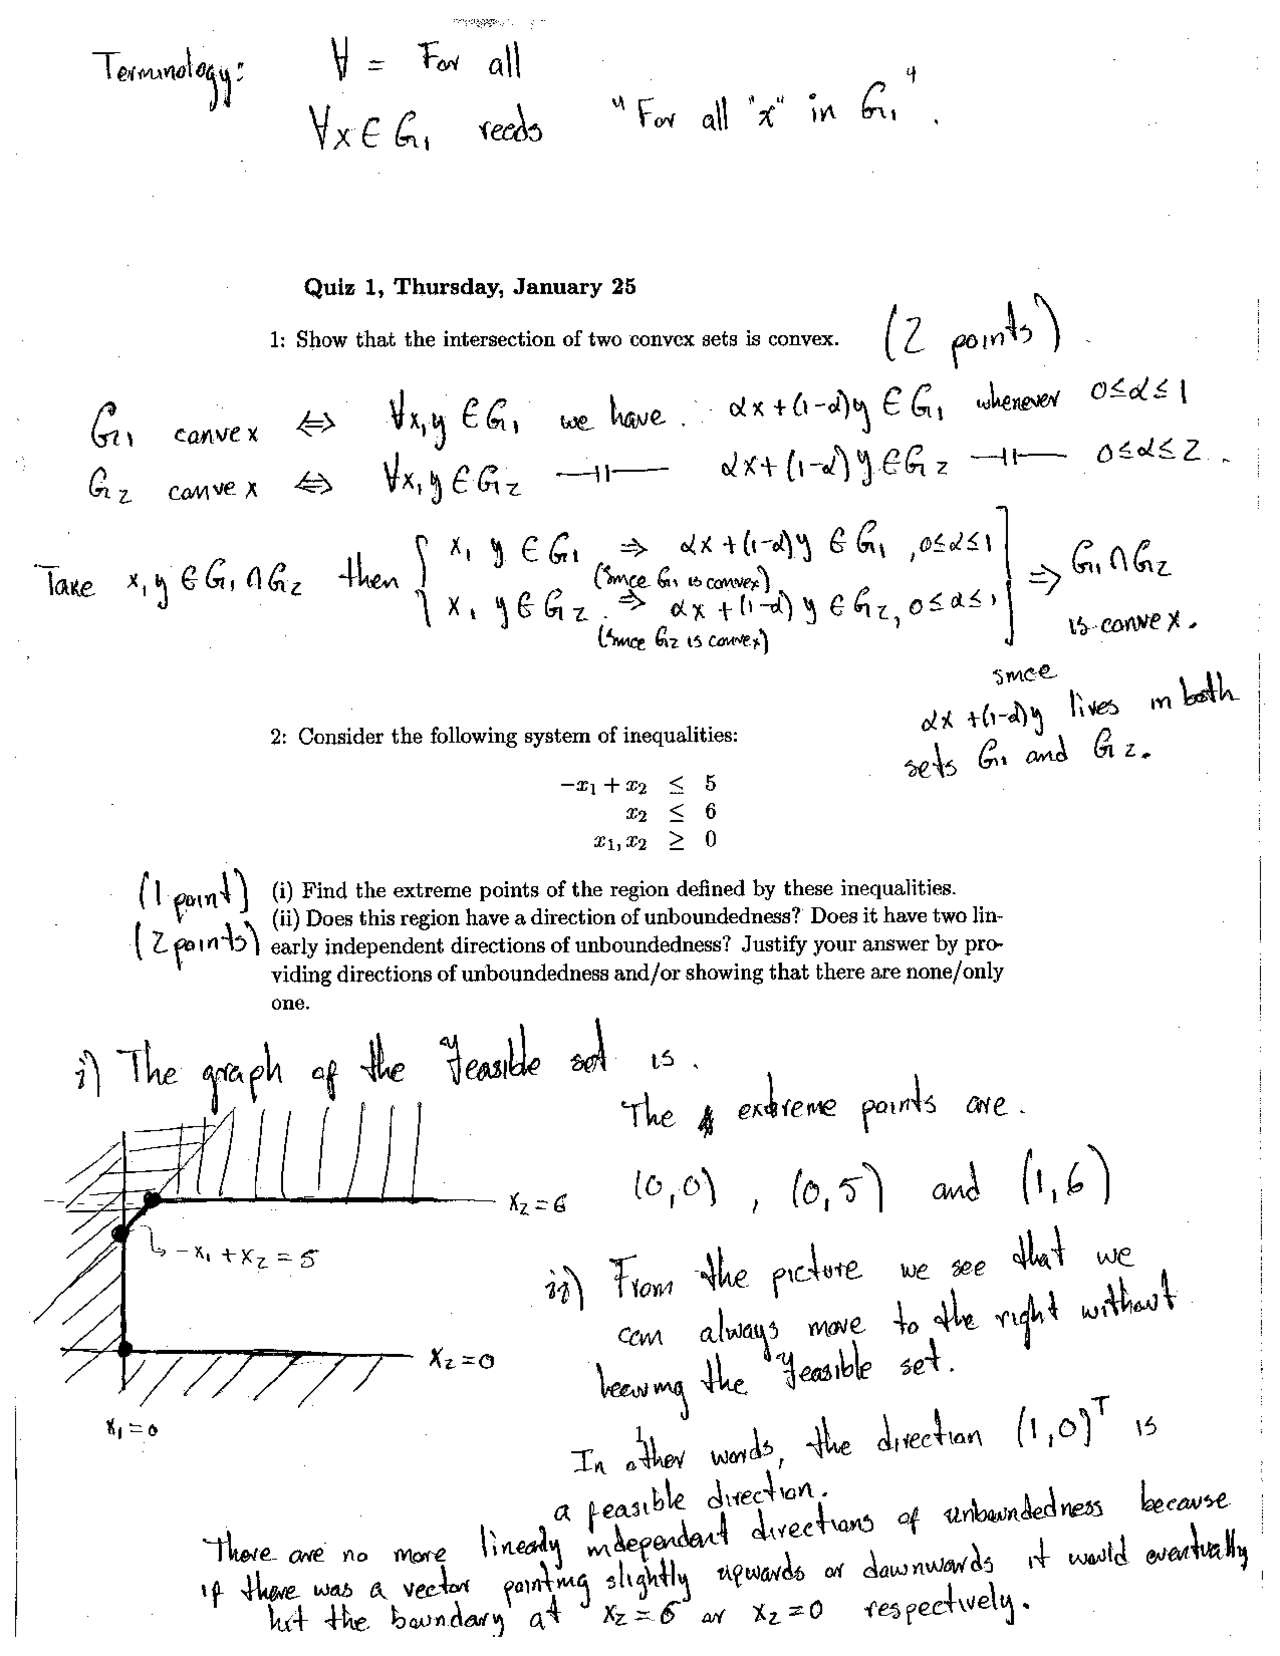 Terminology: ∀ = For all
∀x ∈ G₁ reads "For all "x" in G₁".
Quiz 1, Thursday, January 25
1: Show that the intersection of two convex sets is convex. (2 points)
G₁ convex ⇔ ∀x,y ∈ G₁ we have. αx+(1-α)y ∈ G₁ whenever 0≤α≤1
G₂ convex ⇔ ∀x,y ∈ G₂ —||— αx+(1-α)y ∈ G₂ —||— 0≤α≤2.
Take x,y ∈ G₁∩G₂ then { x, y ∈ G₁ ⇒ αx+(1-α)y ∈ G₁, 0≤α≤1 ] ⇒ G₁∩G₂
(since G₁ is convex)
x, y ∈ G₂. ⇒ αx+(1-α)y ∈ G₂, 0≤α≤1 is convex.
(since G₂ is convex)
since
αx+(1-α)y lives in both
sets G₁ and G₂.
2: Consider the following system of inequalities:
−x₁ + x₂ ≤ 5
x₂ ≤ 6
x₁, x₂ ≥ 0
(1 point) (i) Find the extreme points of the region defined by these inequalities.
(2 points) (ii) Does this region have a direction of unboundedness? Does it have two lin-
early independent directions of unboundedness? Justify your answer by pro-
viding directions of unboundedness and/or showing that there are none/only
one.
i) The graph of the feasible set is.
The extreme points are.
(0,0), (0,5) and (1,6)
x₂=6
-x₁+x₂=5
x₂=0
x₁=0
ii) From the picture we see that we
can always move to the right without
leaving the feasible set.
In other words, the direction (1,0)ᵀ is
a feasible direction.
There are no more linearly independent directions of unboundedness because
if there was a vector pointing slightly upwards or downwards it would eventually
hit the boundary at x₂=6 or x₂=0 respectively.